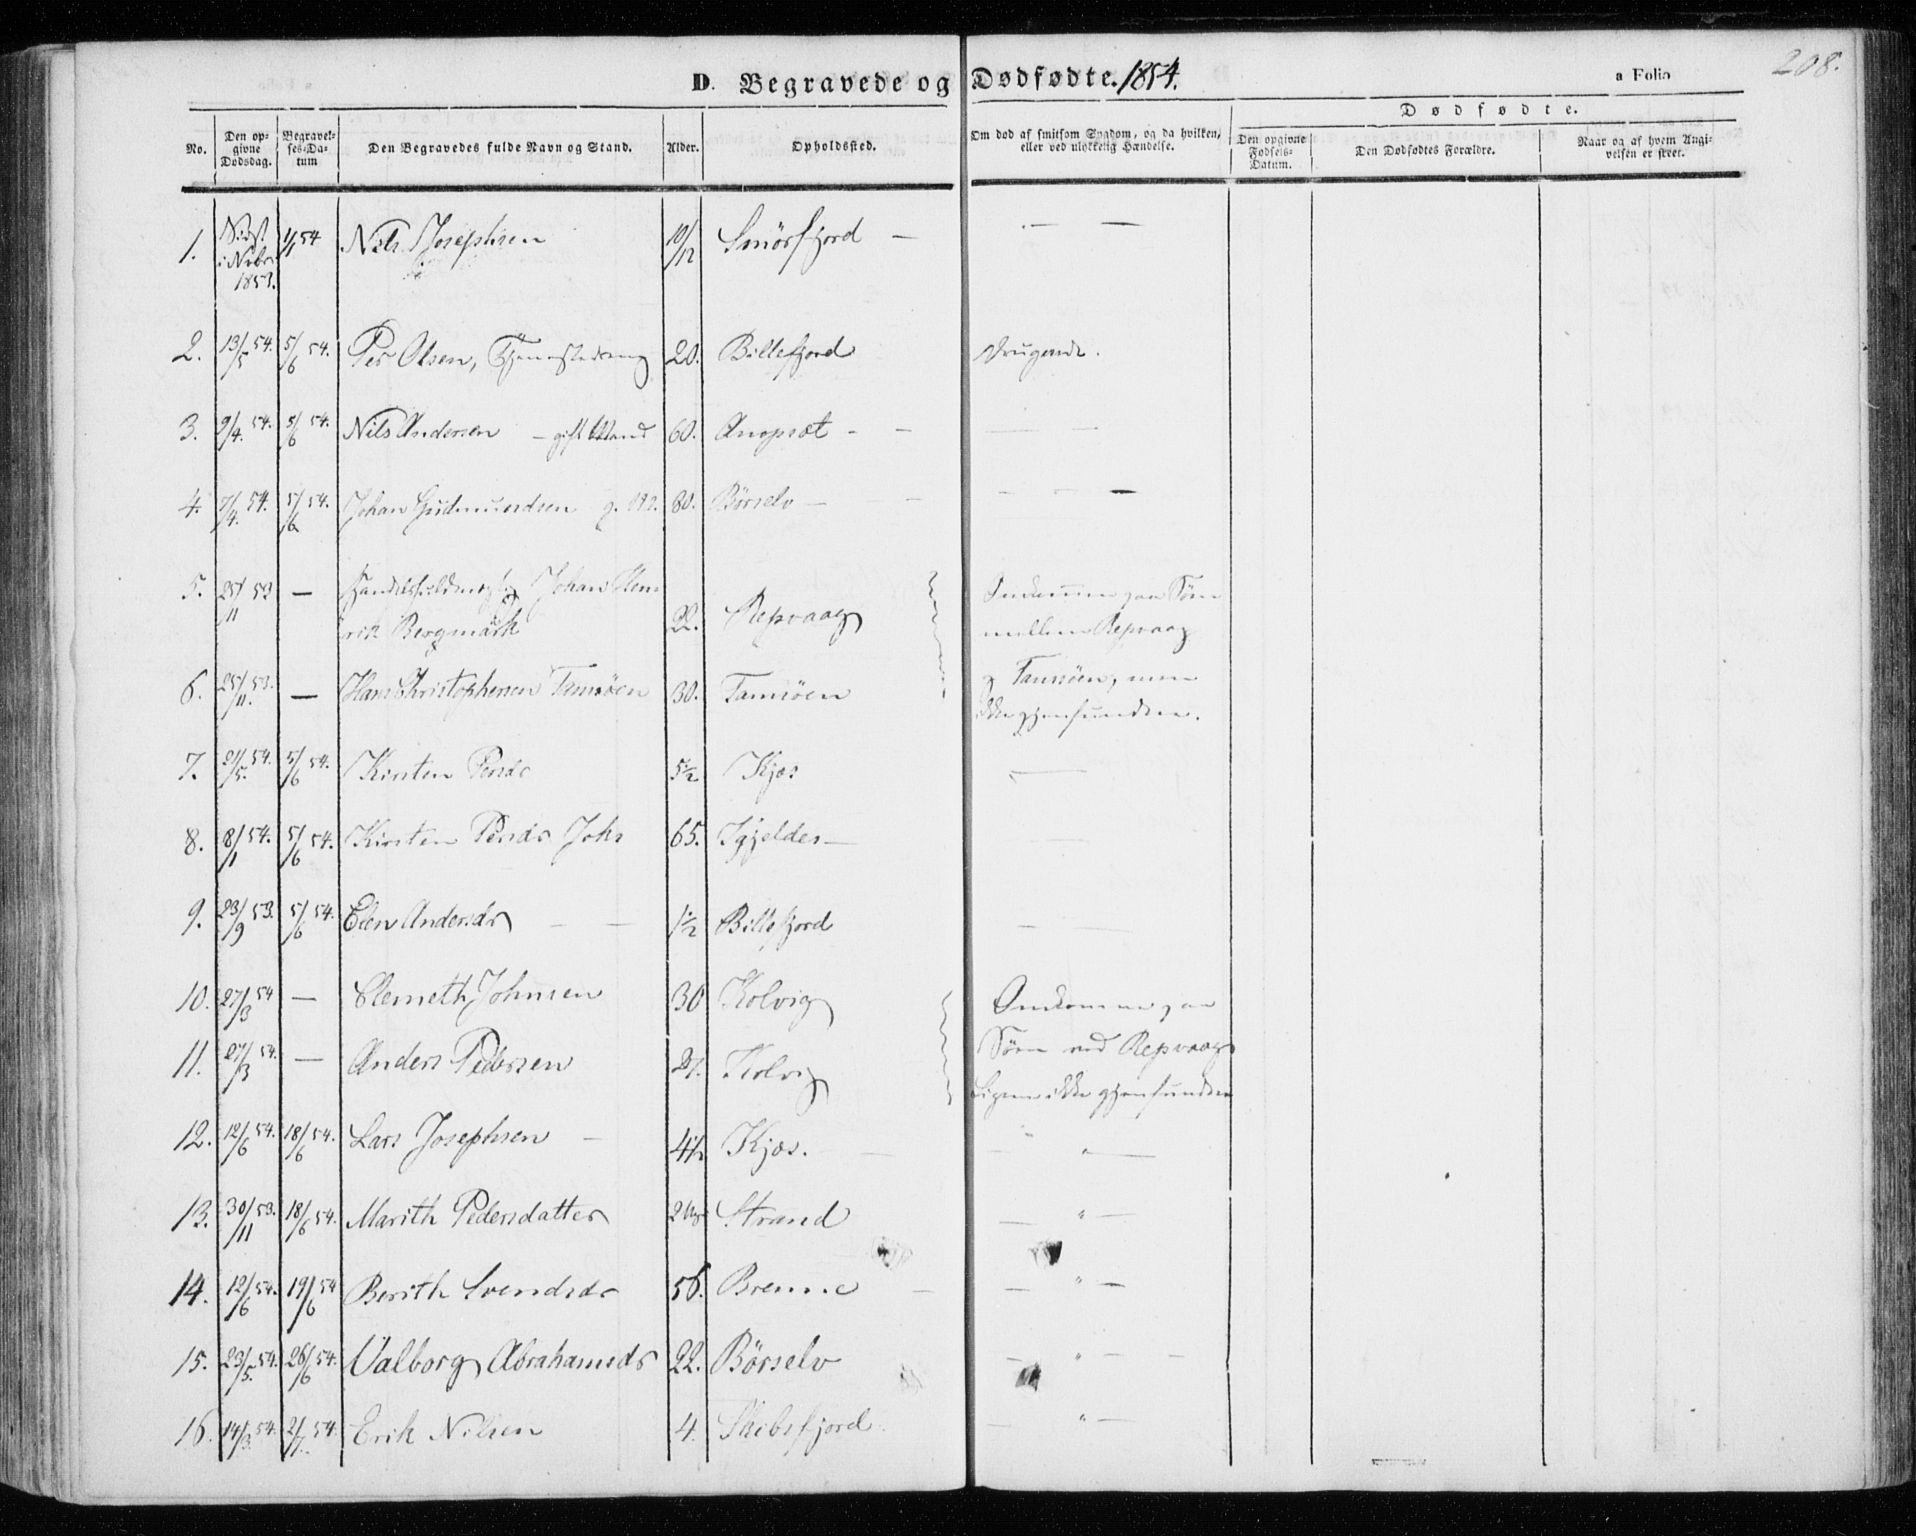 D. Begravede og Dødfødte. 1854.
a Folio 208.
No. | Den opgivne Dødsdag. | Begravelses-Datum | Den Begravedes fulde Navn og Stand. | Alder. | Opholdssted. | Om død af smitsom Sygdom, og da hvilken, eller ved ulykkelig Hændelse. | Dødfødte. Den opgivne Fødsels-Datum. | Den Dødfødtes Forældre. | Naar og af hvem Angivelsen er skeet.
1. 1853. 1/1 54 Nils Josephsen 10/12 Smörfjord — — —
2. 13/5 54. 5/6 54. Per Olsen, 20. Billefjord
3. 9/4 54. 5/6 54. Nils Andersen – gift Mand 60. Anopset - -
4. 7/4 54. 5/6 54. Johan Gudmundsen 80. Börselv —
5. 25/11 53 — Johan Hen
rik Bergmark 22. Repvaag Omkommen paa Söen
mellem Repvaag
6. 25/11 53. — Hans Christophersen Tamsöen 30. Tamsöen og Tamsöen, men
ikke gjenfunden.
7. 21/5 54. 5/6 54. Kirsten Persdr 5½ Kjæs
8. 8/1 54. 5/6 54. Kirsten Persdr Johs 65. Igjeldes —
9. 23/9 53. 5/6 54. Elen Andersdr — — 1½ Billefjord
10. 27/3 54 — Clemeth Johnsen 30 Kolvig Omkommen paa
11. 27/3 54. — Anders Pedersen 27. Kolvig Söen ved Repvaag
Ligene ikke gjenfunden
12. 12/6 54. 18/6 54. Lars Josephsen – 4½ Kjæs. — " —
13. 30/11 53. 18/6 54. Marith Pedersdatter Strand — " —
14. 12/6 54. 19/6 54 Berith Svendsdr 56. Brenne — " —
15. 23/5 54. 26/6 54. Valborg Abrahamsdr 22. Börselv — " —
16. 14/3 54. 2/7 54. Erik Nilsen 4. Skibsfjord — " —